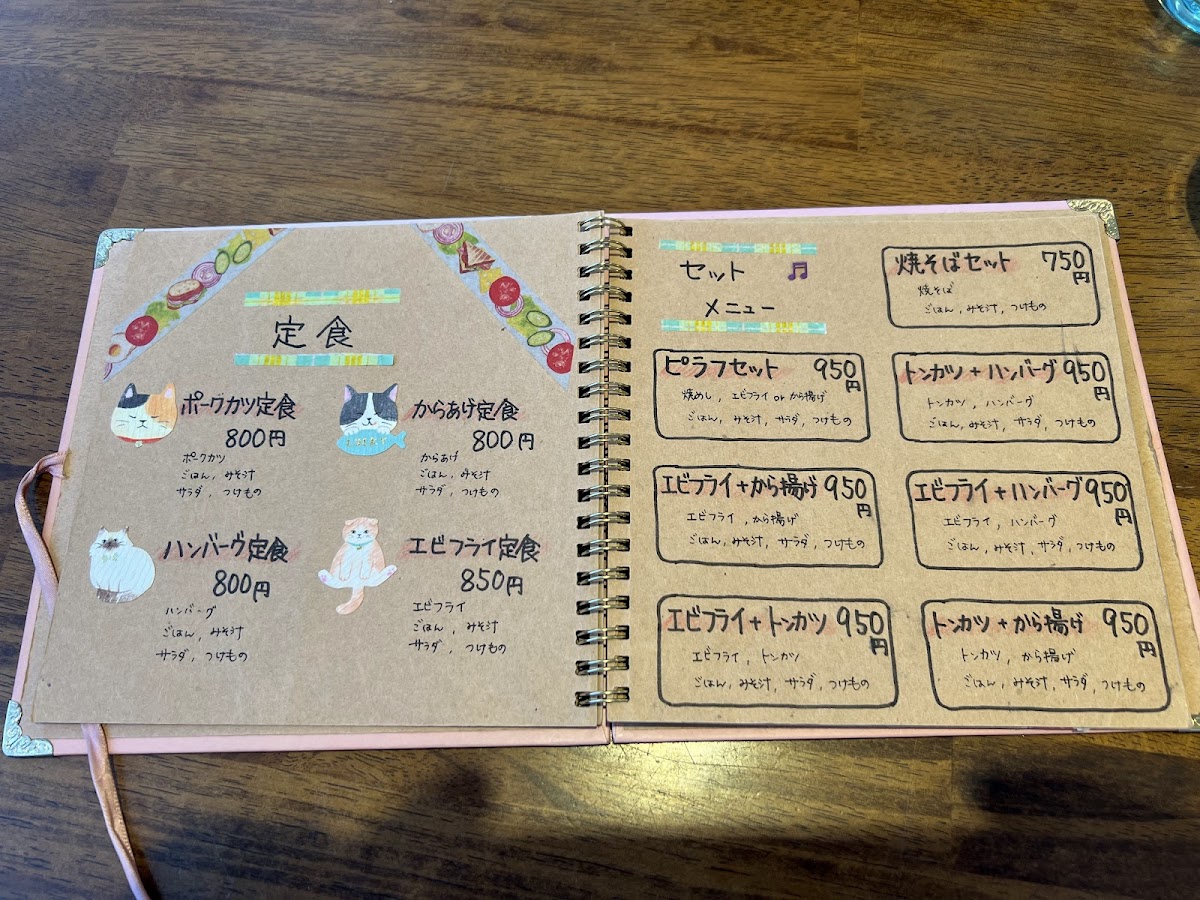 定食
ポークカツ定食
800円
ポークカツ
ごはん, みそ汁
サラダ, つけもの
からあげ定食
800円
からあげ
ごはん, みそ汁
サラダ, つけもの
ハンバーグ定食
800円
ハンバーグ
ごはん, みそ汁
サラダ, つけもの
エビフライ定食
850円
エビフライ
ごはん, みそ汁
サラダ, つけもの
セット
メニュー
焼そばセット 750円
焼そば
ごはん, みそ汁, つけもの
ピラフセット 950円
焼めし, エビフライ or から揚げ
ごはん, みそ汁, サラダ, つけもの
トンカツ+ハンバーグ 950円
トンカツ, ハンバーグ
ごはん, みそ汁, サラダ, つけもの
エビフライ+から揚げ 950円
エビフライ, から揚げ
ごはん, みそ汁, サラダ, つけもの
エビフライ+ハンバーグ 950円
エビフライ, ハンバーグ
ごはん, みそ汁, サラダ, つけもの
エビフライ+トンカツ 950円
エビフライ, トンカツ
ごはん, みそ汁, サラダ, つけもの
トンカツ+から揚げ 950円
トンカツ, から揚げ
ごはん, みそ汁, サラダ, つけもの